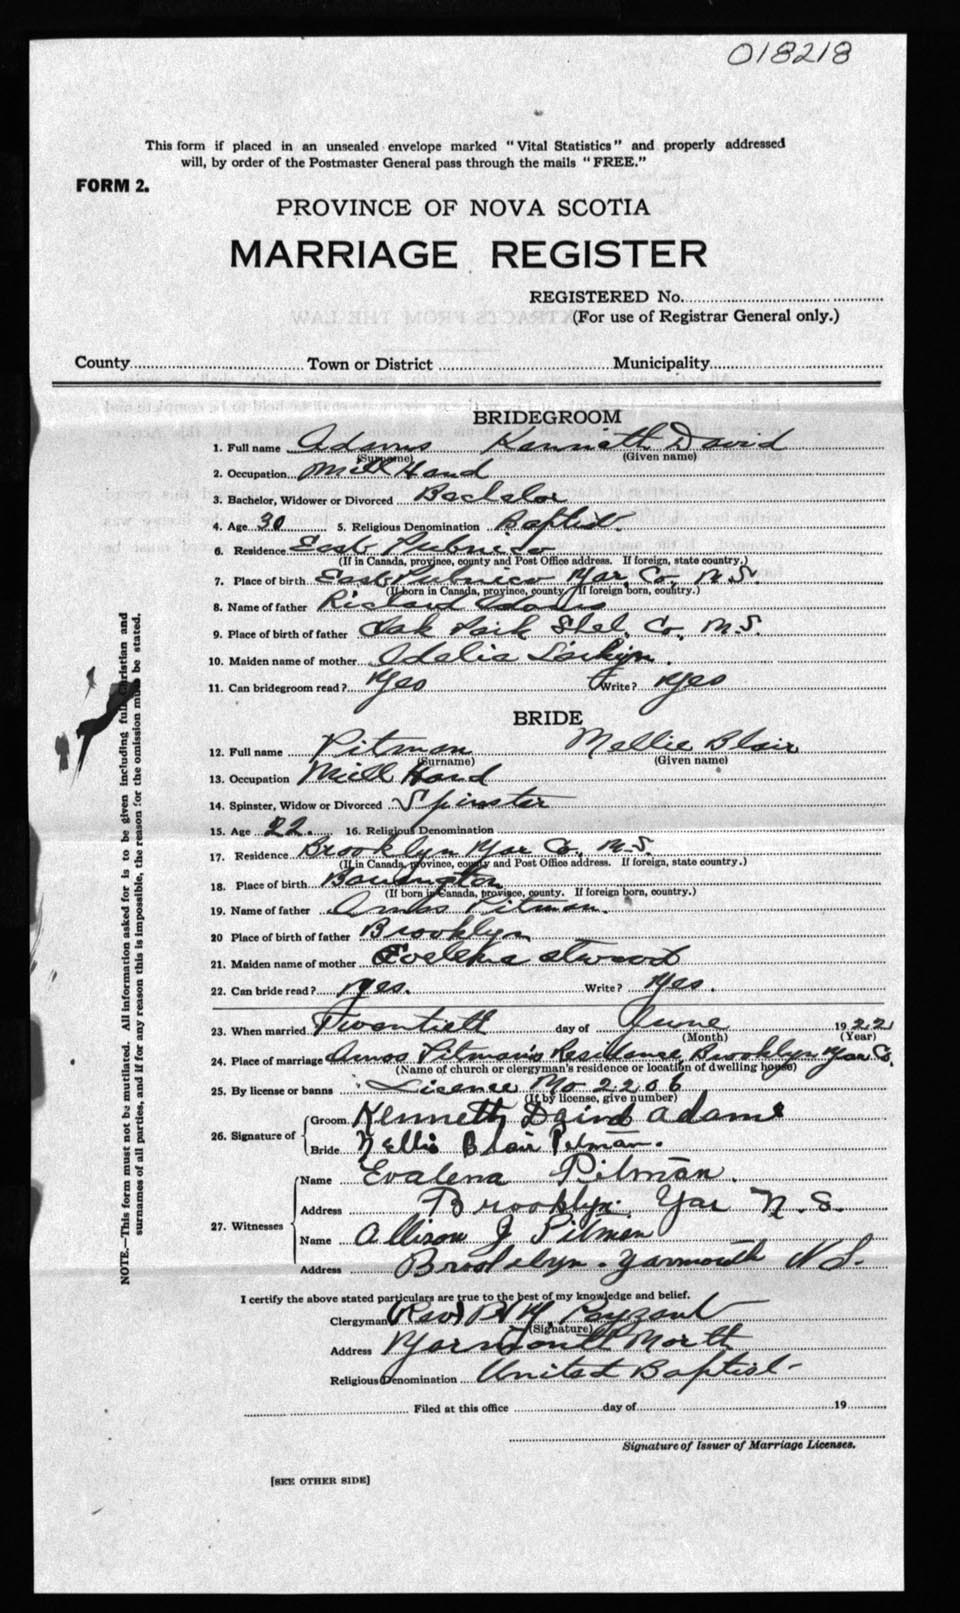 018218
This form if placed in an unsealed envelope marked "Vital Statistics" and properly addressed
will, by order of the Postmaster General pass through the mails "FREE."
FORM 2.
PROVINCE OF NOVA SCOTIA
MARRIAGE REGISTER
REGISTERED No.
(For use of Registrar General only.)
County Town or District Municipality
BRIDEGROOM
1. Full name Adams Kenneth David
(Surname) (Given name)
2. Occupation Mill Hand
3. Bachelor, Widower or Divorced Bachelor
4. Age 30 5. Religious Denomination Baptist.
6. Residence East Pubnico
(If in Canada, province, county and Post Office address. If foreign, state country.)
7. Place of birth East Pubnico Yar. Co. N.S.
(If born in Canada, province, county. If foreign born, country.)
8. Name of father Richard Adams
9. Place of birth of father Oak Park Shel. Co. N.S.
10. Maiden name of mother Adelia Larkin.
11. Can bridegroom read? Yes Write? Yes
BRIDE
12. Full name Pitman Nellie Blair
(Surname) (Given name)
13. Occupation Mill Hand
14. Spinster, Widow or Divorced Spinster
15. Age 22. 16. Religious Denomination
17. Residence Brooklyn Yar Co, N.S.
(If in Canada, province, county and Post Office address. If foreign, state country.)
18. Place of birth
(If born in Canada, province, county. If foreign born, country.)
19. Name of father Amos Pitman.
20 Place of birth of father Brooklyn
21. Maiden name of mother
22. Can bride read? Yes. Write? Yes.
23. When married Twentieth day of June 1922
(Month) (Year)
24. Place of marriage Amos Pitman's Residence, Brooklyn Yar Co,
(Name of church or clergyman's residence or location of dwelling house)
25. By license or banns License No 2206
(If by license, give number)
26. Signature of Groom Kenneth David Adams
Bride Nellie Blair Pitman.
27. Witnesses Name Evalena Pitman.
Address Brooklyn. Yar N.S.
Name Allison J Pitman
Address Brooklyn. Yarmouth N S.
I certify the above stated particulars are true to the best of my knowledge and belief.
Clergyman (Rev) Payzant
(Signature)
Address Yarmouth North
Religious Denomination United Baptist
Filed at this office day of 19
Signature of Issuer of Marriage Licenses.
[SEE OTHER SIDE]
NOTE.—This form must not be mutilated. All information asked for is to be given including full Christian and
surnames of all parties, and if for any reason this is impossible, the reason for the omission must be stated.